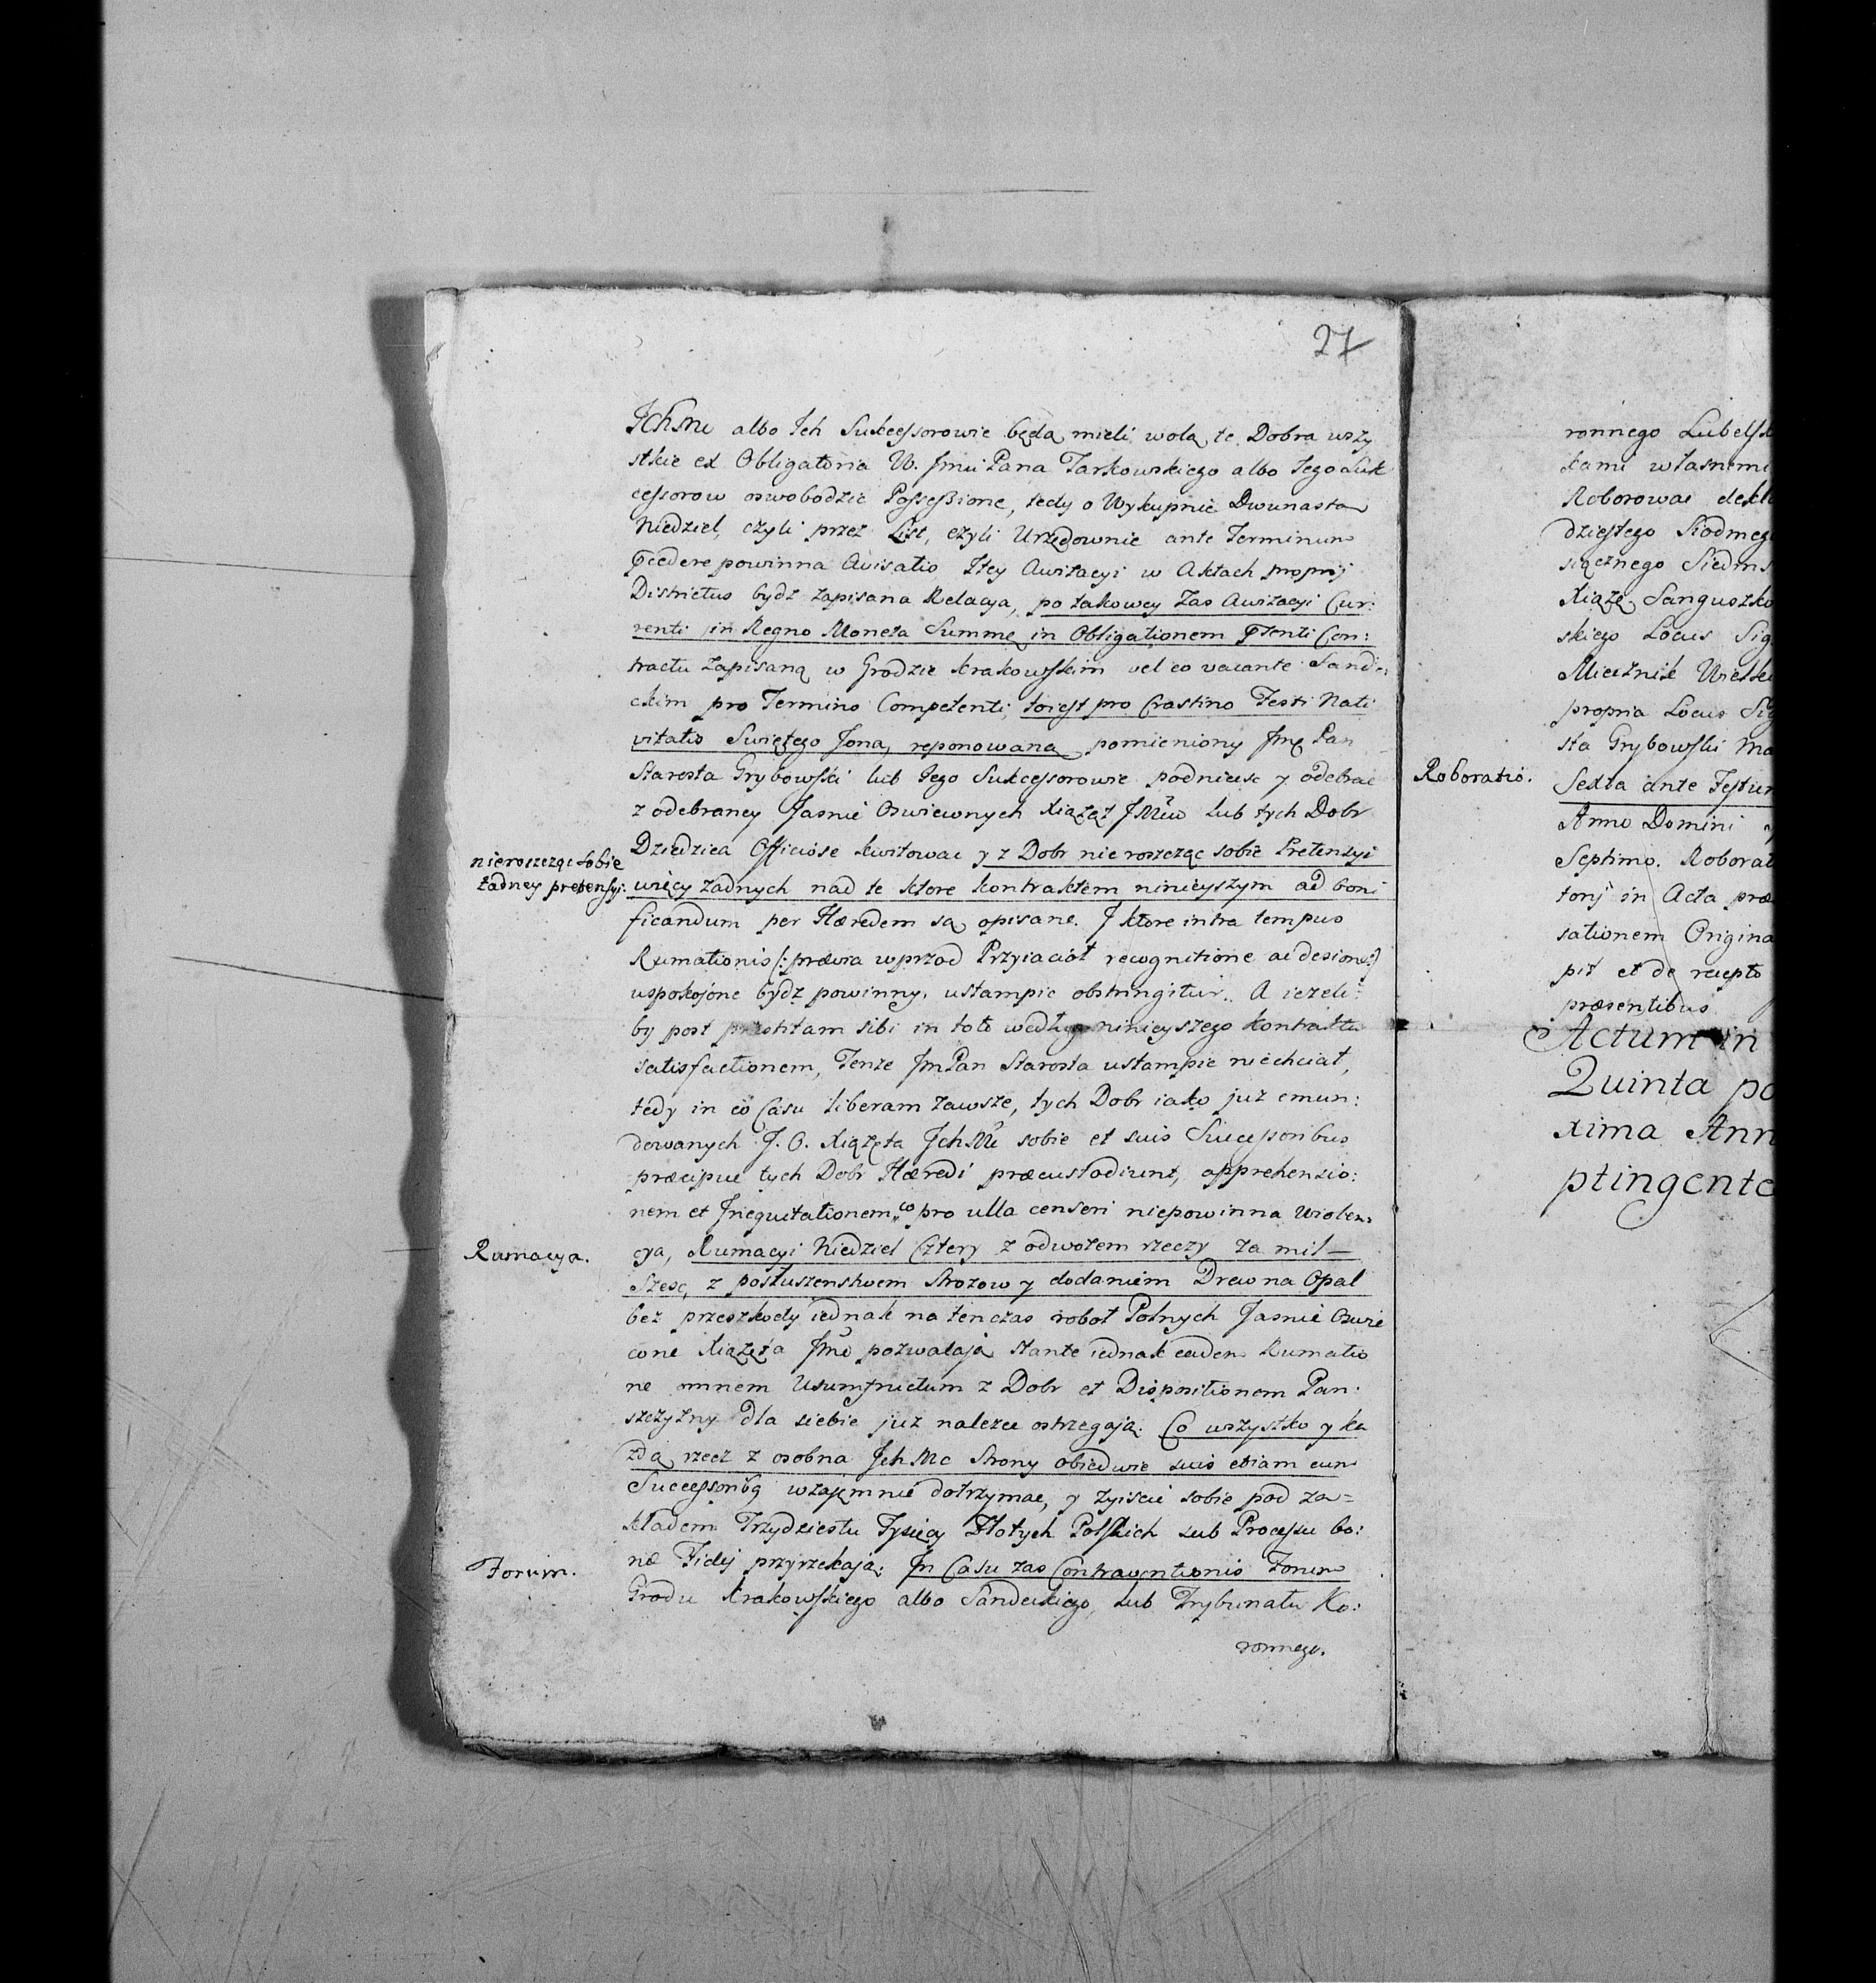 27
JchMć albo Jch Sukcessorowie będą mieli wolą te Dobra wszy
stkie ex Obligatoria W. Jmci Pana Tarkowskiego albo Jego Suk
cessorow oswobodzic Possessione, tedy o Wykupnie Dwunasto
Niedziel, czyli przez List, czyli Urzędownie ante Terminum
powinna Avisatio Ktey Awizacyi w Aktach proprij
Districtus bydz zapisana Relacya, po takowey zas Awizacyi Cur:
renti in Regno Moneta Summę in Obligationem Contr
tractu zapisaną w Grodzie Krakowskim vel eo vacante Sande:
ckim pro Termino Competenti, toiest pro Crastino Festi Nati
vitatis Swiętego Jona, reponowaną pomieniony Jmę Pan
Starosta Grybowski lub Jego Sukcessorowie podniesc y odebrac
z odebraney Jasnie Oswieconych Xiążąt JMciw lub tych Dobr
Dziedzica Officiose kwitowac y z Dobr nie roszcząc sobie Pretensyi
nieroszcząc sobie
żadney pretensyi.
więcy żadnych nad te ktore kontraktem ninieyszym ad boni
ficandum per Hæredem są opisane. J ktore intra tempus
Rumationis (: prævia wprzod Przyiaciół recognitione ac :)
uspokojone bydz powinny, ustampic obstringitur. A iezeli:
by post præstitam sibi in toto według ninieyszego Kontraktu
satisfactionem, Tenże JmPan Starosta ustampic niechciał,
tedy in eo Casu liberam zawsze, tych Dobr iako już emun:
dowanych J. O. Xiążęta JchMć sobie et suis Successoribus
præcipue tych Dobr Hæredi præcustodiunt, apprehensio:
nem et Jnequitationem, co pro ulla censeri niepowinna Violen:
Rumacya.
cya, Rumacyi Niedziel Cztery z odwozem rzeczy za mil
Szesc, z posłuszenstwem Strozow y dodaniem Drewna Opał
bez przeszkody iednak na tenczas robot Polnych Jasnie Oswie
cone Xiążęta Jmć pozwalają stante iednak eadem Rumatio
ne omnem Usumfructum z Dobr et Dispositionem Pan:
szczyzny dla siebie już nalezec ostrzegają. Co wszystko y ka
zdą rzecz z osobna JchMc Strony obiedwie suis etiam cum
Successoribg wzajemnie dotrzymac, y zyiscic sobie pod za=
kładem Trzydziestu Tysięcy Złotych Polskich sub Processu bo:
næ Fidej przyrzekają: Jn Casu zas Contraventionis Forum
Forum.
Grodu Krakowskiego albo Sandeckiego, lub Trybunału Ko:
ronnego.
ronnego Lubelsk
kami własnemi
Roborowac dekl
dziestego Siodmeg
siącznego Siedms
Xiąże Sanguszko
skiego Locus Sig
Miecznik Wielki
propria Locus Sig
sta Grybowski Ma
Roboratio.
Sexta ante Festum
Anno Domini
Septimo. Roborat
torij in Acta præ
sationem Origina
pit et de recepto
præsentibus
Actum in
Quinta po
xima Ann
ptingente